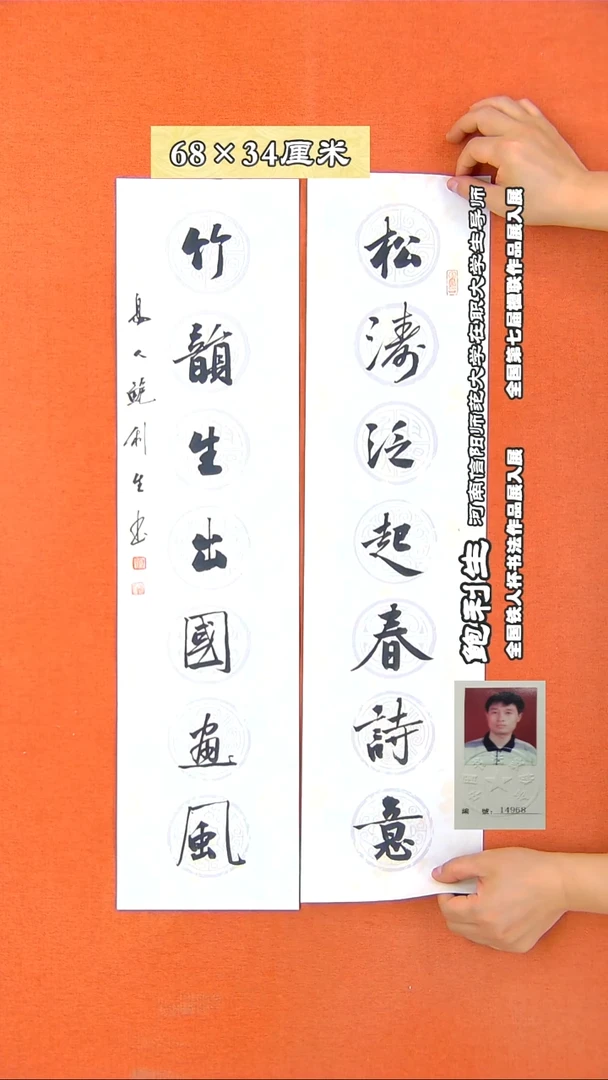 68×34厘米
松濤泛起春詩意
竹韻生出國畫風
息人鮑利生书
鲍利生 河南信阳师范大学在职大学生导师
全国第七届楹联作品展入展
全国铁人杯书法作品展入展
編號：14968